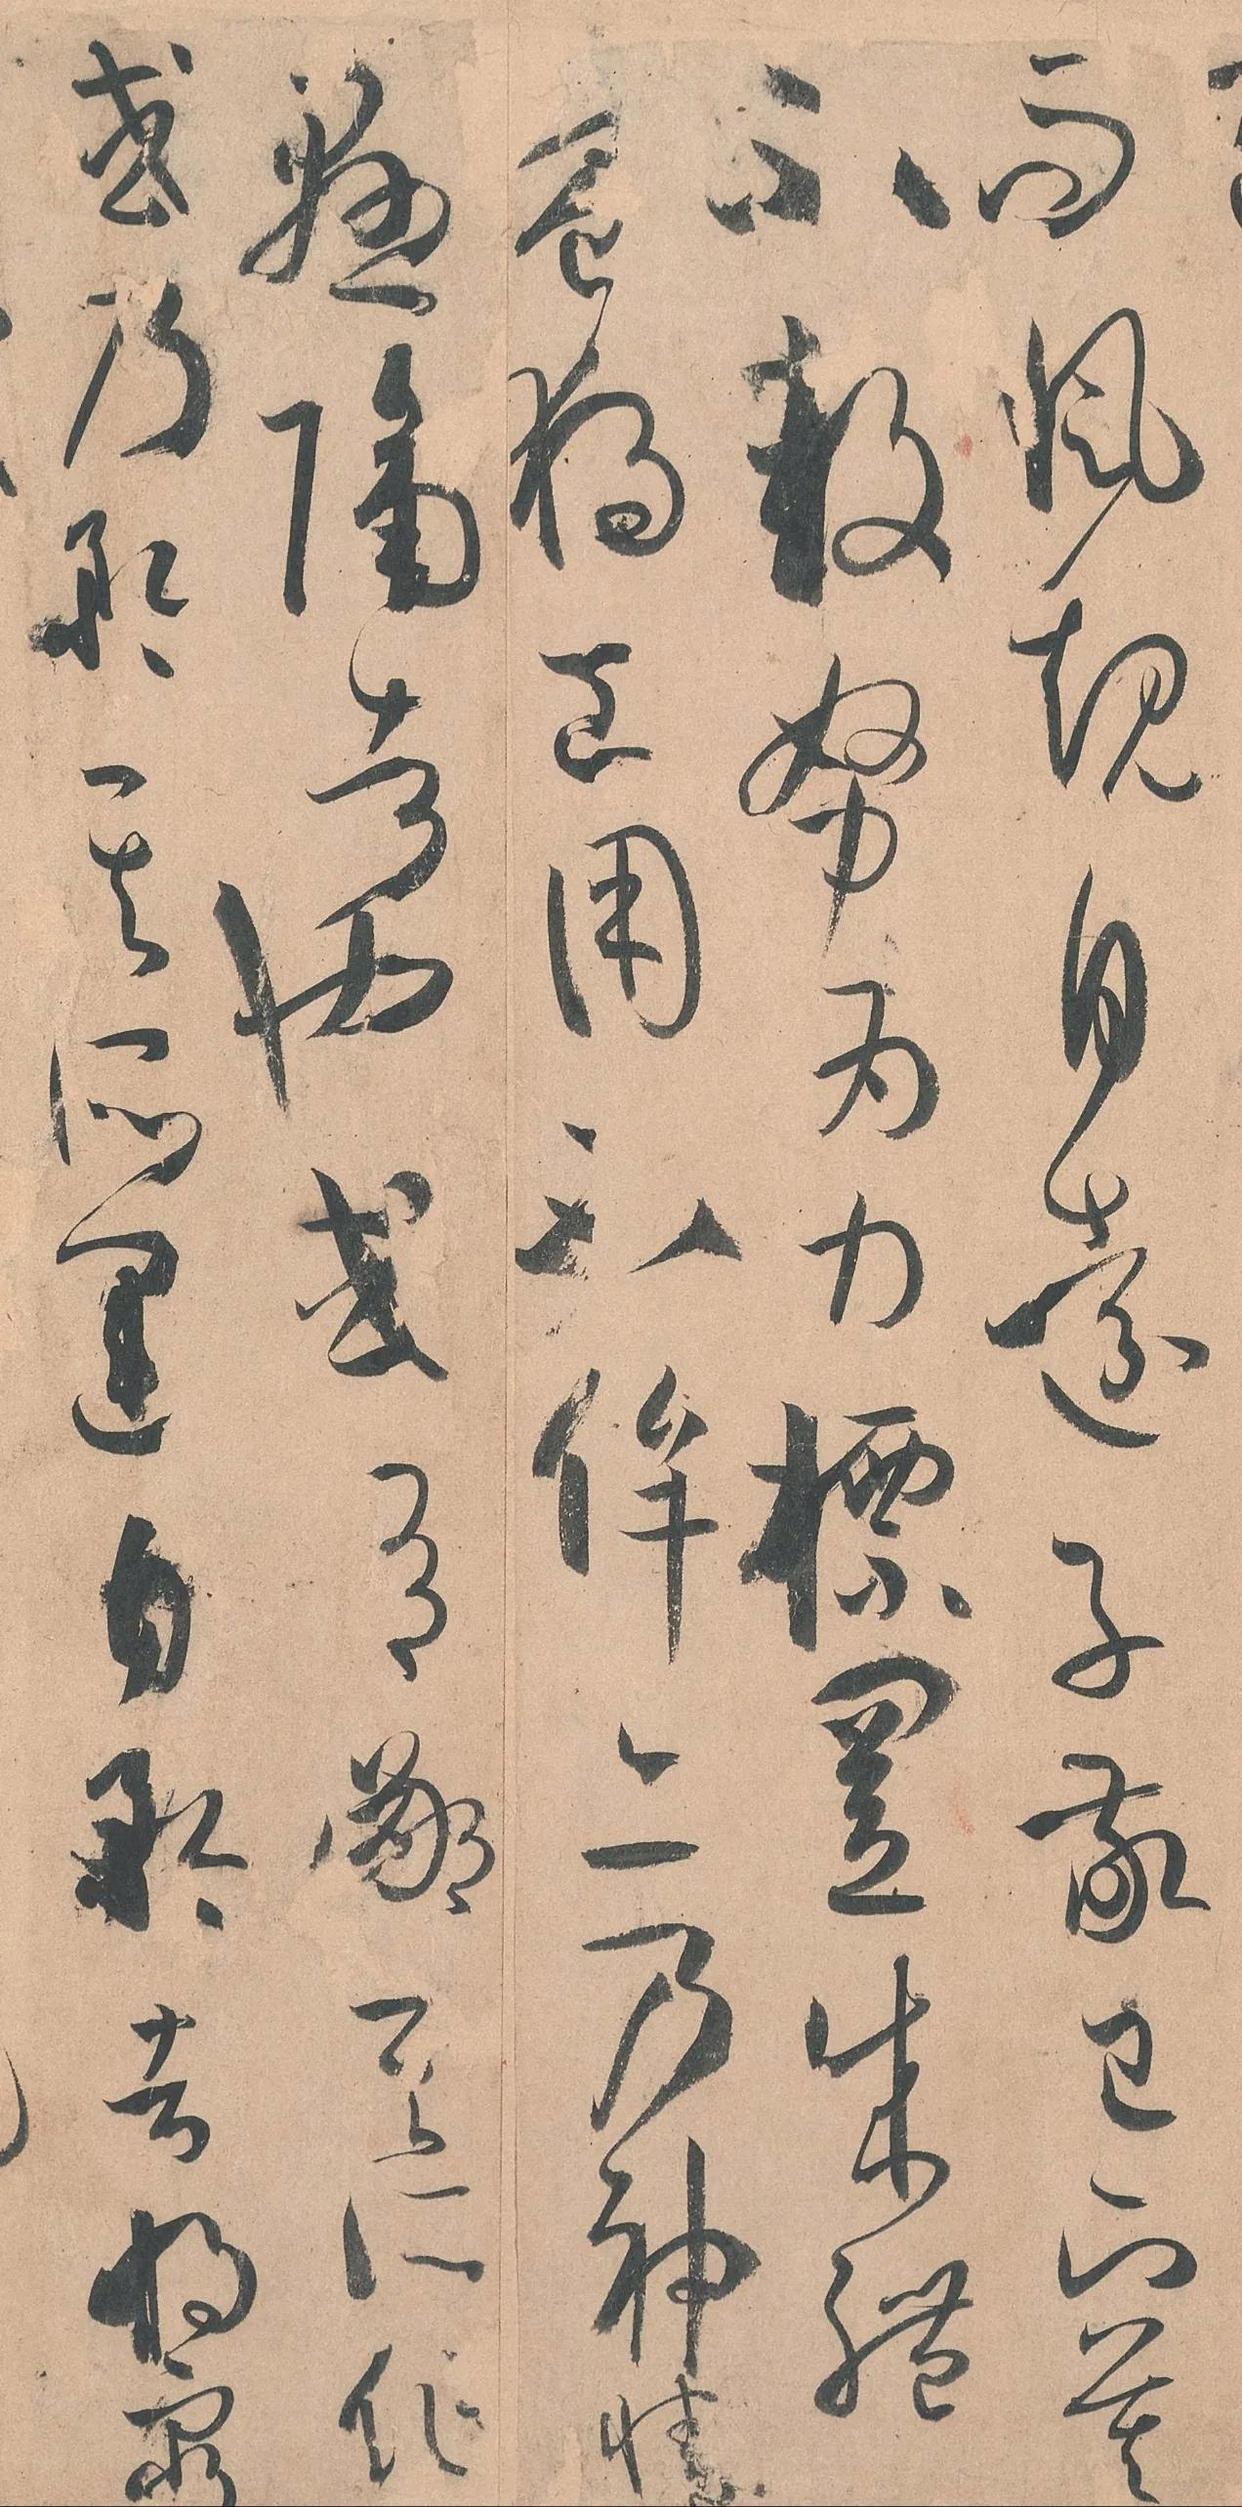 而風規自遠子敬已下莫
不鼓努為力標置成體
豈獨工用不侔亦乃神情
懸隔者也或有鄙其所作
或乃矜其所運自矜者將窮